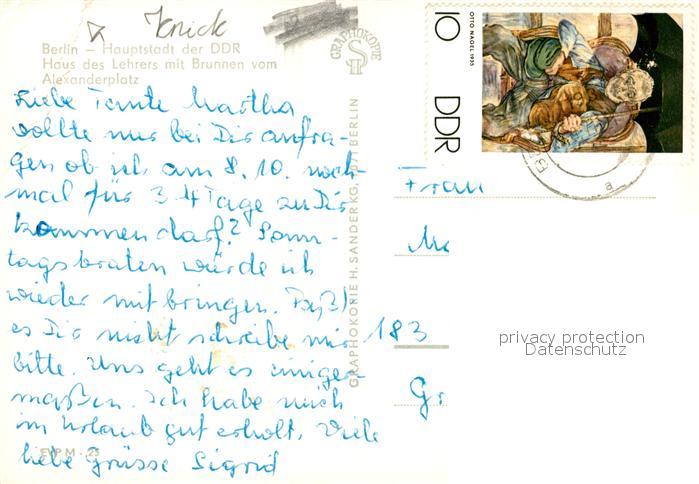 Knick
Berlin – Hauptstadt der DDR
Haus des Lehrers mit Brunnen vom
Alexanderplatz
Liebe Tante Martha
wollte nur bei Dir anfra-
gen ob ich am 8.10. noch-
mal für 3 4 Tage zu Dir
kommen darf? Sonn-
tagsbraten würde ich
wieder mitbringen.
es Dir nicht schreibe mir
bitte. Uns geht es einiger-
maßen. Ich habe mich
im Urlaub gut erholt. Viele
liebe Grüsse Sigrid
GRAPHOKOPIE
GRAPHOKOPIE H. SANDER KG, BERLIN
OTTO NAGEL 1935
10 DDR
a
Frau
183
Gr
privacy protection
Datenschutz